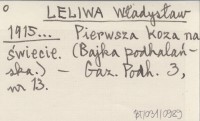 LELIWA Władysław
1915... Pierwsza Koza na
świecie. (Bajka podhalań-
ska.) - Gaz. Podh. 3,
nr 13.